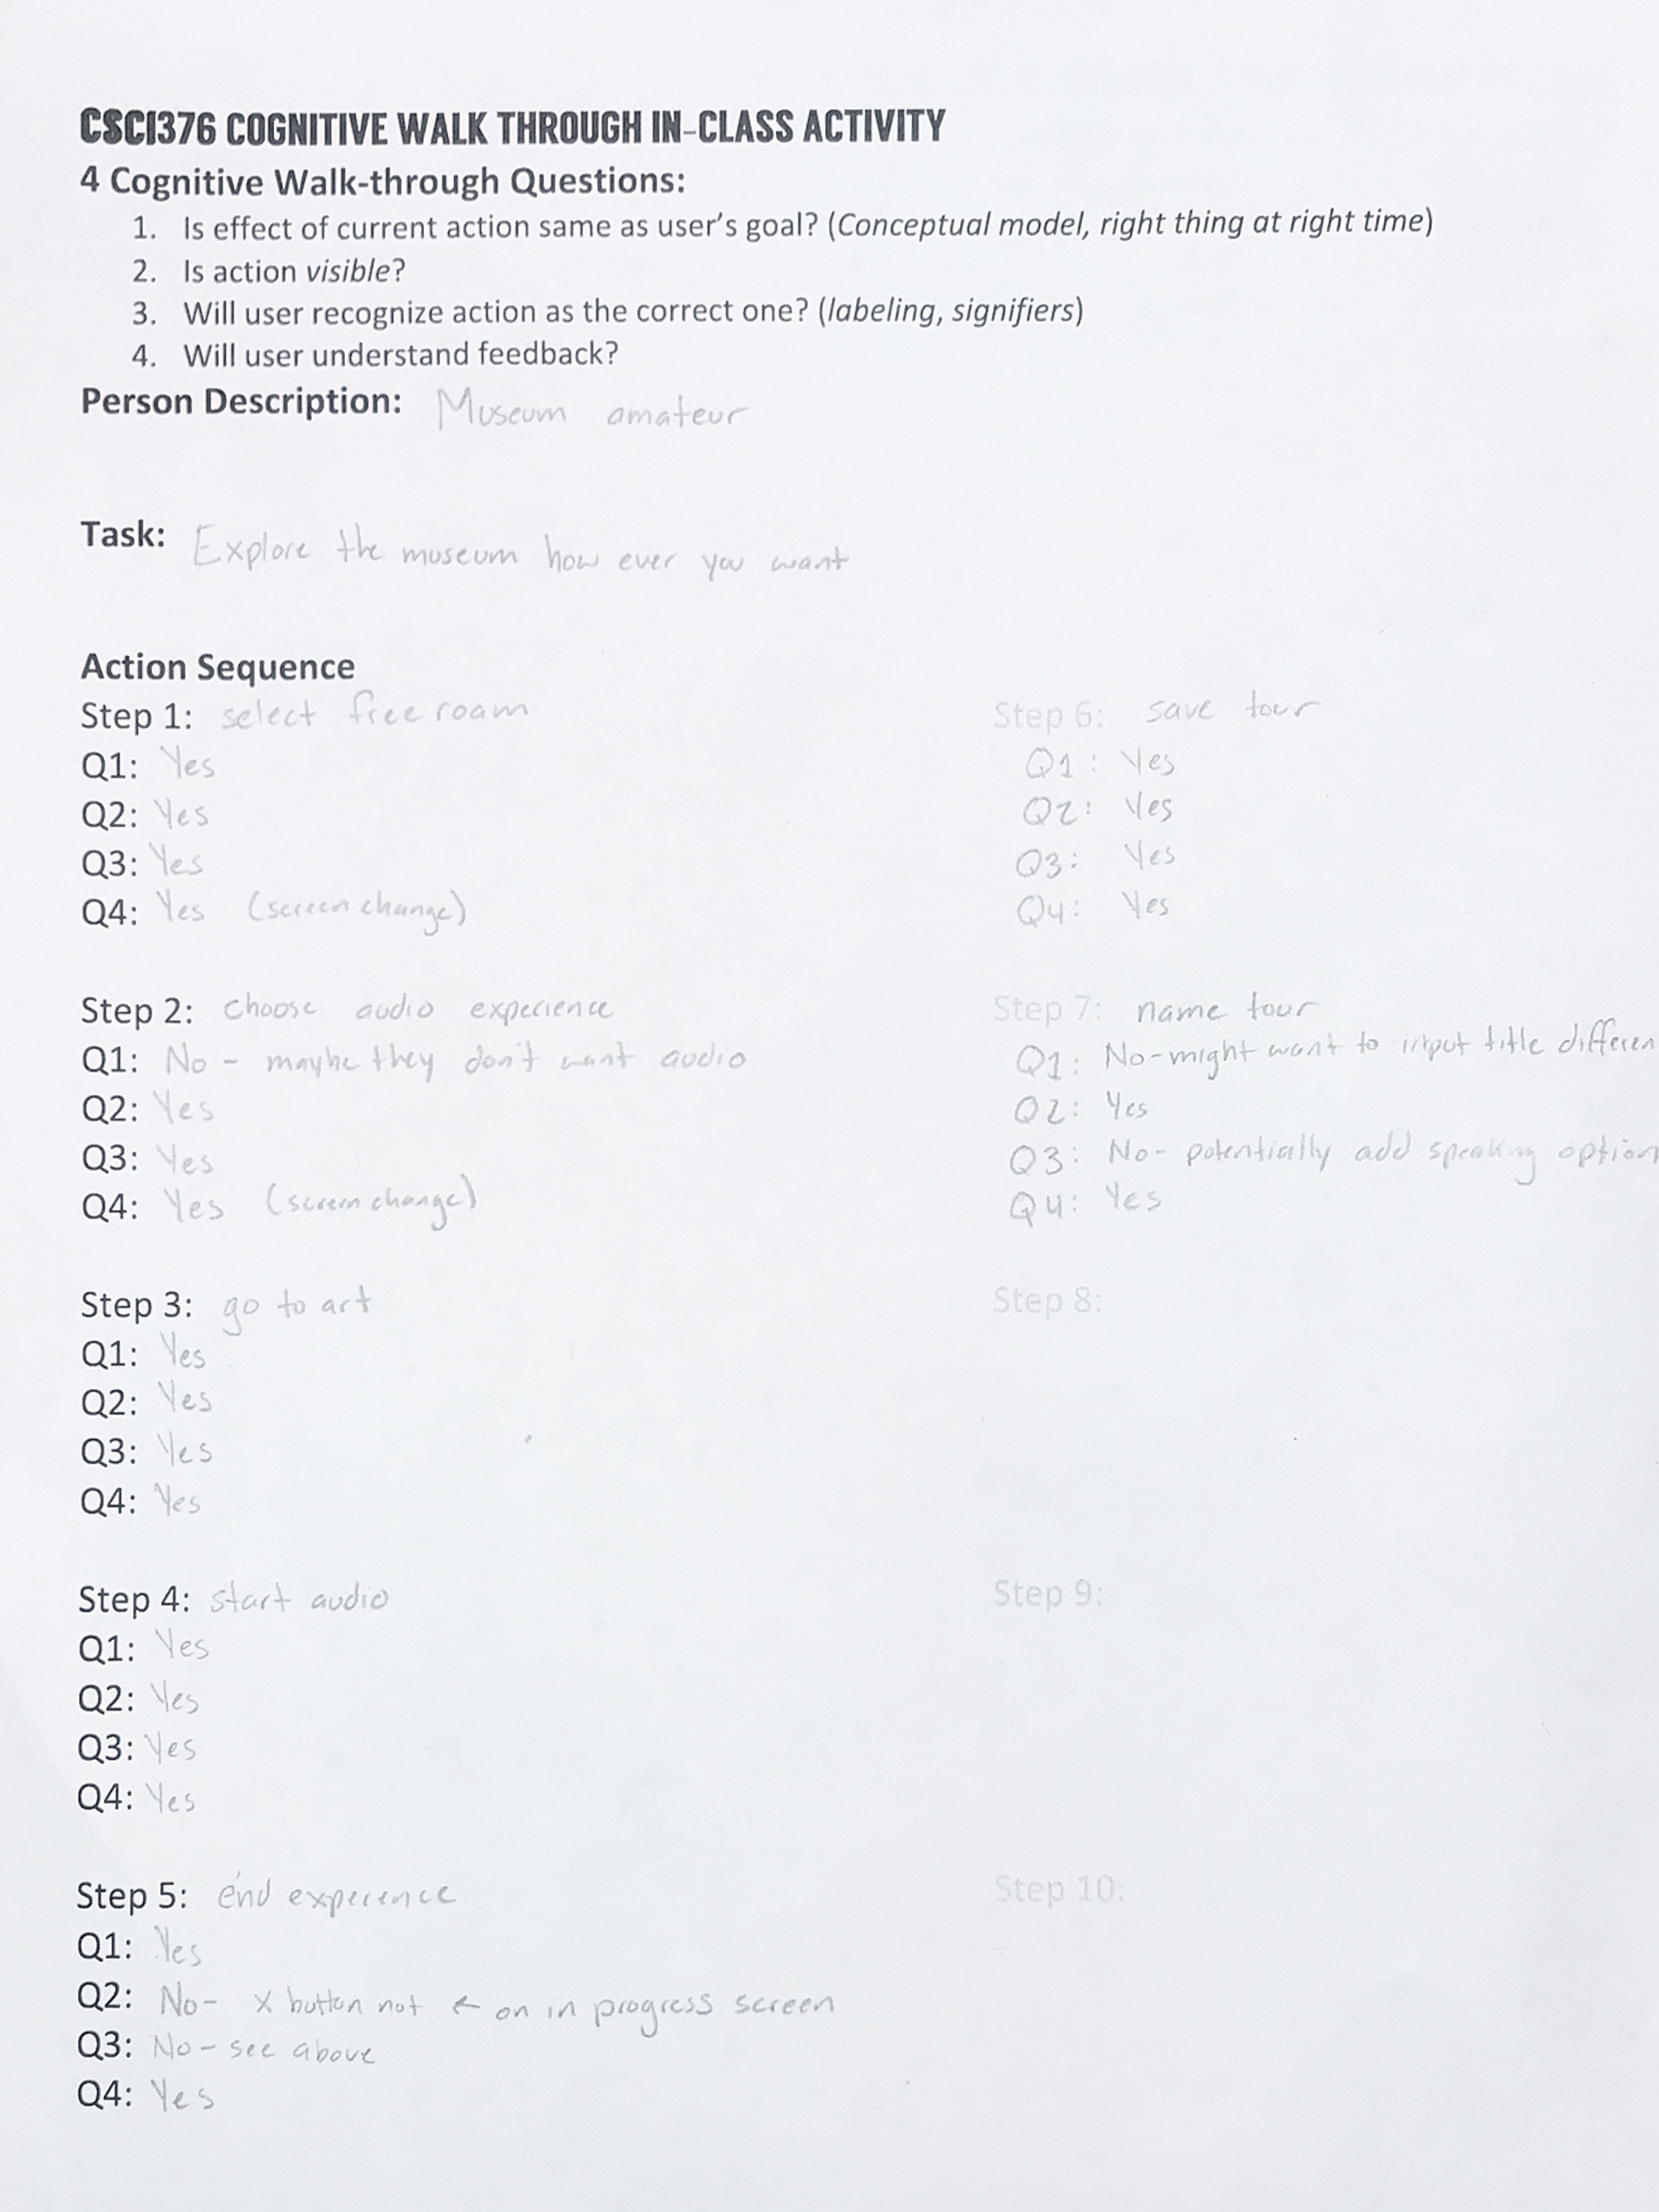 CSCI376 COGNITIVE WALK THROUGH IN-CLASS ACTIVITY
4 Cognitive Walk-through Questions:
1. Is effect of current action same as user's goal? (Conceptual model, right thing at right time)
2. Is action visible?
3. Will user recognize action as the correct one? (labeling, signifiers)
4. Will user understand feedback?
Person Description: Museum amateur
Task: Explore the museum how ever you want
Action Sequence
Step 1: select free roam
Q1: Yes
Q2: Yes
Q3: Yes
Q4: Yes (screen change)
Step 2: choose audio experience
Q1: No - maybe they don't want audio
Q2: Yes
Q3: Yes
Q4: Yes (screen change)
Step 3: go to art
Q1: Yes
Q2: Yes
Q3: Yes
Q4: Yes
Step 4: start audio
Q1: Yes
Q2: Yes
Q3: Yes
Q4: Yes
Step 5: end experence
Q1: Yes
Q2: No- X button not ← on in progress screen
Q3: No - see above
Q4: Yes
Step 6: save tour
Q1: Yes
Q2: Yes
Q3: Yes
Q4: Yes
Step 7: name tour
Q1: No-might want to input title differen
Q2: Yes
Q3: No- potentially add speaking option
Q4: Yes
Step 8:
Step 9:
Step 10: